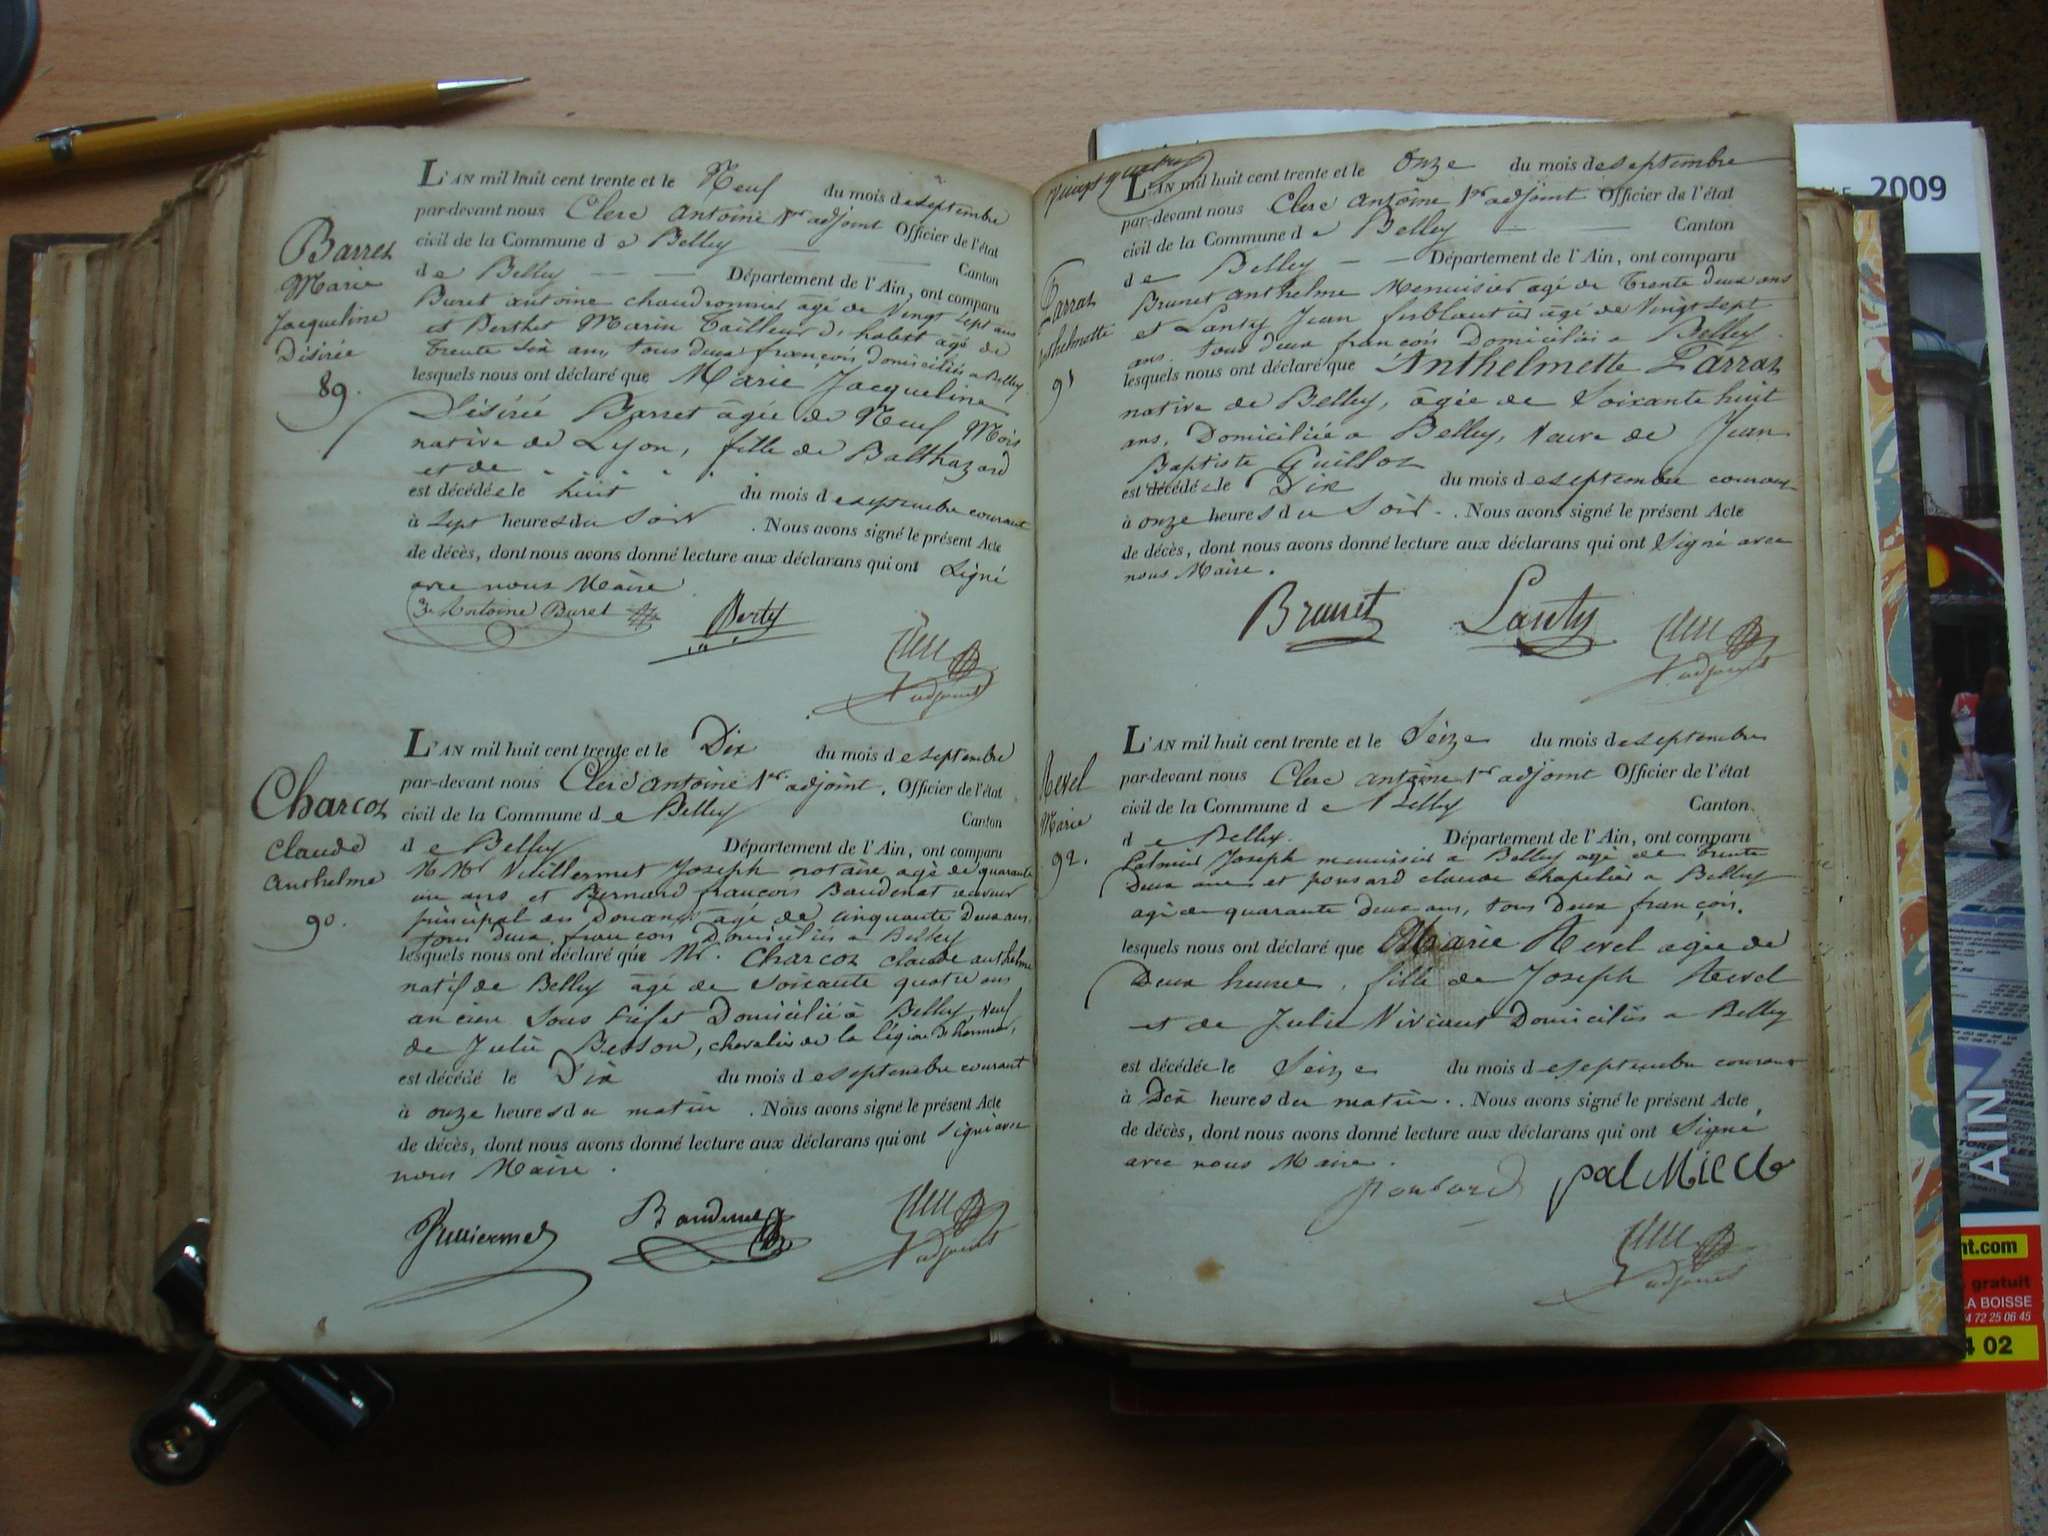 Barret
Marie
Jacqueline
Désirée
89.
L'AN mil huit cent trente et le Neuf du mois de septembre
par-devant nous Clerc antoine 1er adjoint Officier de l'état
civil de la Commune de Belley Canton
de Belley Département de l'Ain, ont comparu
Buret antoine chaudronnier agé de Vingt sept ans
et Berthet Marin Tailleur d'habist agé de
trente six ans, tous deux françois domiciliés a Belley
lesquels nous ont déclaré que Marie Jacqueline
Désirée Barret âgée de Neuf Mois
native de Lyon, fille de Balthazard
et de
est décédée le huit du mois de septembre courant
à sept heures du Soir . Nous avons signé le présent Acte
de décès, dont nous avons donné lecture aux déclarans qui ont Signé
avec nous Maire
Antoine Buret
adjoint
Charcot
Claude
Anthelme
90.
L'AN mil huit cent trente et le Dix du mois de septembre
par-devant nous Clerc antoine 1er adjoint. Officier de l'état
civil de la Commune de Belley Canton
de Belley Département de l'Ain, ont comparu
M Mrs Vuillermet Joseph notaire agé de quarante
un ans et Bernard françois Baudenat receveur
principal des Douanes agé de cinquante Deux ans,
tous deux françois Domiciliés a Belley
lesquels nous ont déclaré que Mr. Charcot claude anthelme
natif de Belley âgé de soixante quatre ans
ancien Sous Préfet Domicilié à Belley Veuf
de Julie Besson, chevalier de la légion D'honneur,
est décédé le Dix du mois de septembre courant
à onze heures du matin . Nous avons signé le présent Acte
de décès, dont nous avons donné lecture aux déclarans qui ont signé avec
nous Maire.
Vuillermet
adjoint
vingt quatre
Parrat
anthelmette
91
L'AN mil huit cent trente et le Onze du mois de septembre
par-devant nous Clerc antoine 1er adjoint Officier de l'état
civil de la Commune de Belley Canton
de Belley Département de l'Ain, ont comparu
Brunet anthelme Menuisier agé de Trente deux ans
et Lanty Jean ferblantier âgé de Vingt sept
ans, tous deux françois Domiciliés a Belley
lesquels nous ont déclaré que Anthelmette Parrat
native de Belley, âgée de Soixante huit
ans, Domiciliée a Belley, Veuve de Jean
Baptiste Guillot
est décédée le Dix du mois de septembre courant
à onze heures du Soir. . Nous avons signé le présent Acte
de décès, dont nous avons donné lecture aux déclarans qui ont Signé avec
nous Maire.
Brunet Lanty
adjoint
Revel
Marie
92.
L'AN mil huit cent trente et le Seize du mois de septembre
par-devant nous Clerc antoine 1er adjoint Officier de l'état
civil de la Commune de Belley Canton
de Belley. Département de l'Ain, ont comparu
Palmied Joseph menuisier a Belley agé de Trente
Deux ans et ponsard claude chapelier a Belley
agé de quarante deux ans, tous Deux françois.
lesquels nous ont déclaré que Marie Revel agée de
Deux heures, fille de Joseph Revel
et de Julie Viviant Domiciliés a Belley
est décédée le Seize du mois de septembre courant
à Dix heures du matin. . Nous avons signé le présent Acte
de décès, dont nous avons donné lecture aux déclarans qui ont Signé
avec nous Maire.
ponsard
adjoint
2009
AIN
nt.com
gratuit
LA BOISSE
4 72 25 06 45
4 02